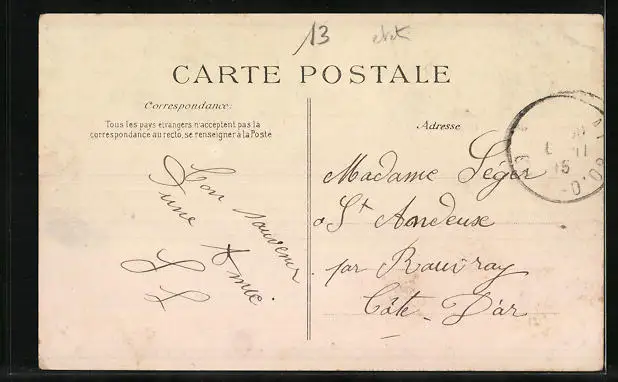 13
CARTE POSTALE
Correspondance:
Tous les pays étrangers n'acceptent pas la
correspondance au recto, se renseigner à la Poste
Bon souvenir
d'une Amie
Adresse
Madame Léger
St Andeux
par Rouvray
Côte-D'or